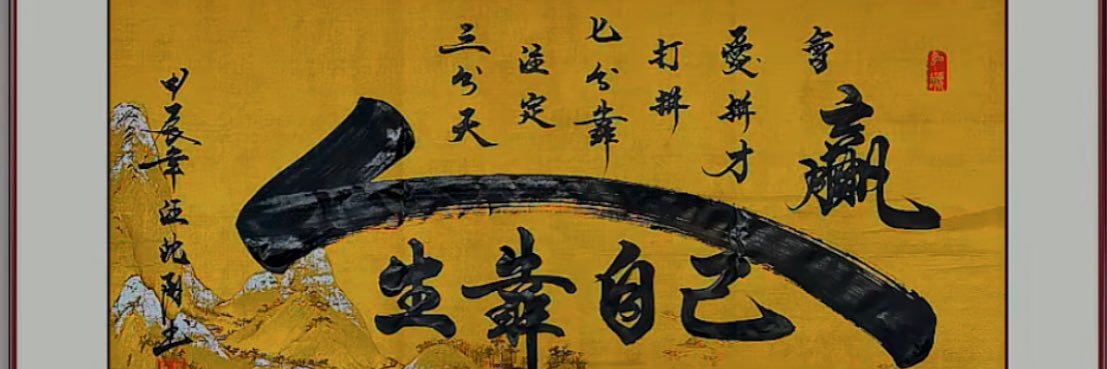 三分天
注定
七分靠
打拼
愛拼才
會
贏
人生靠自己
甲辰年